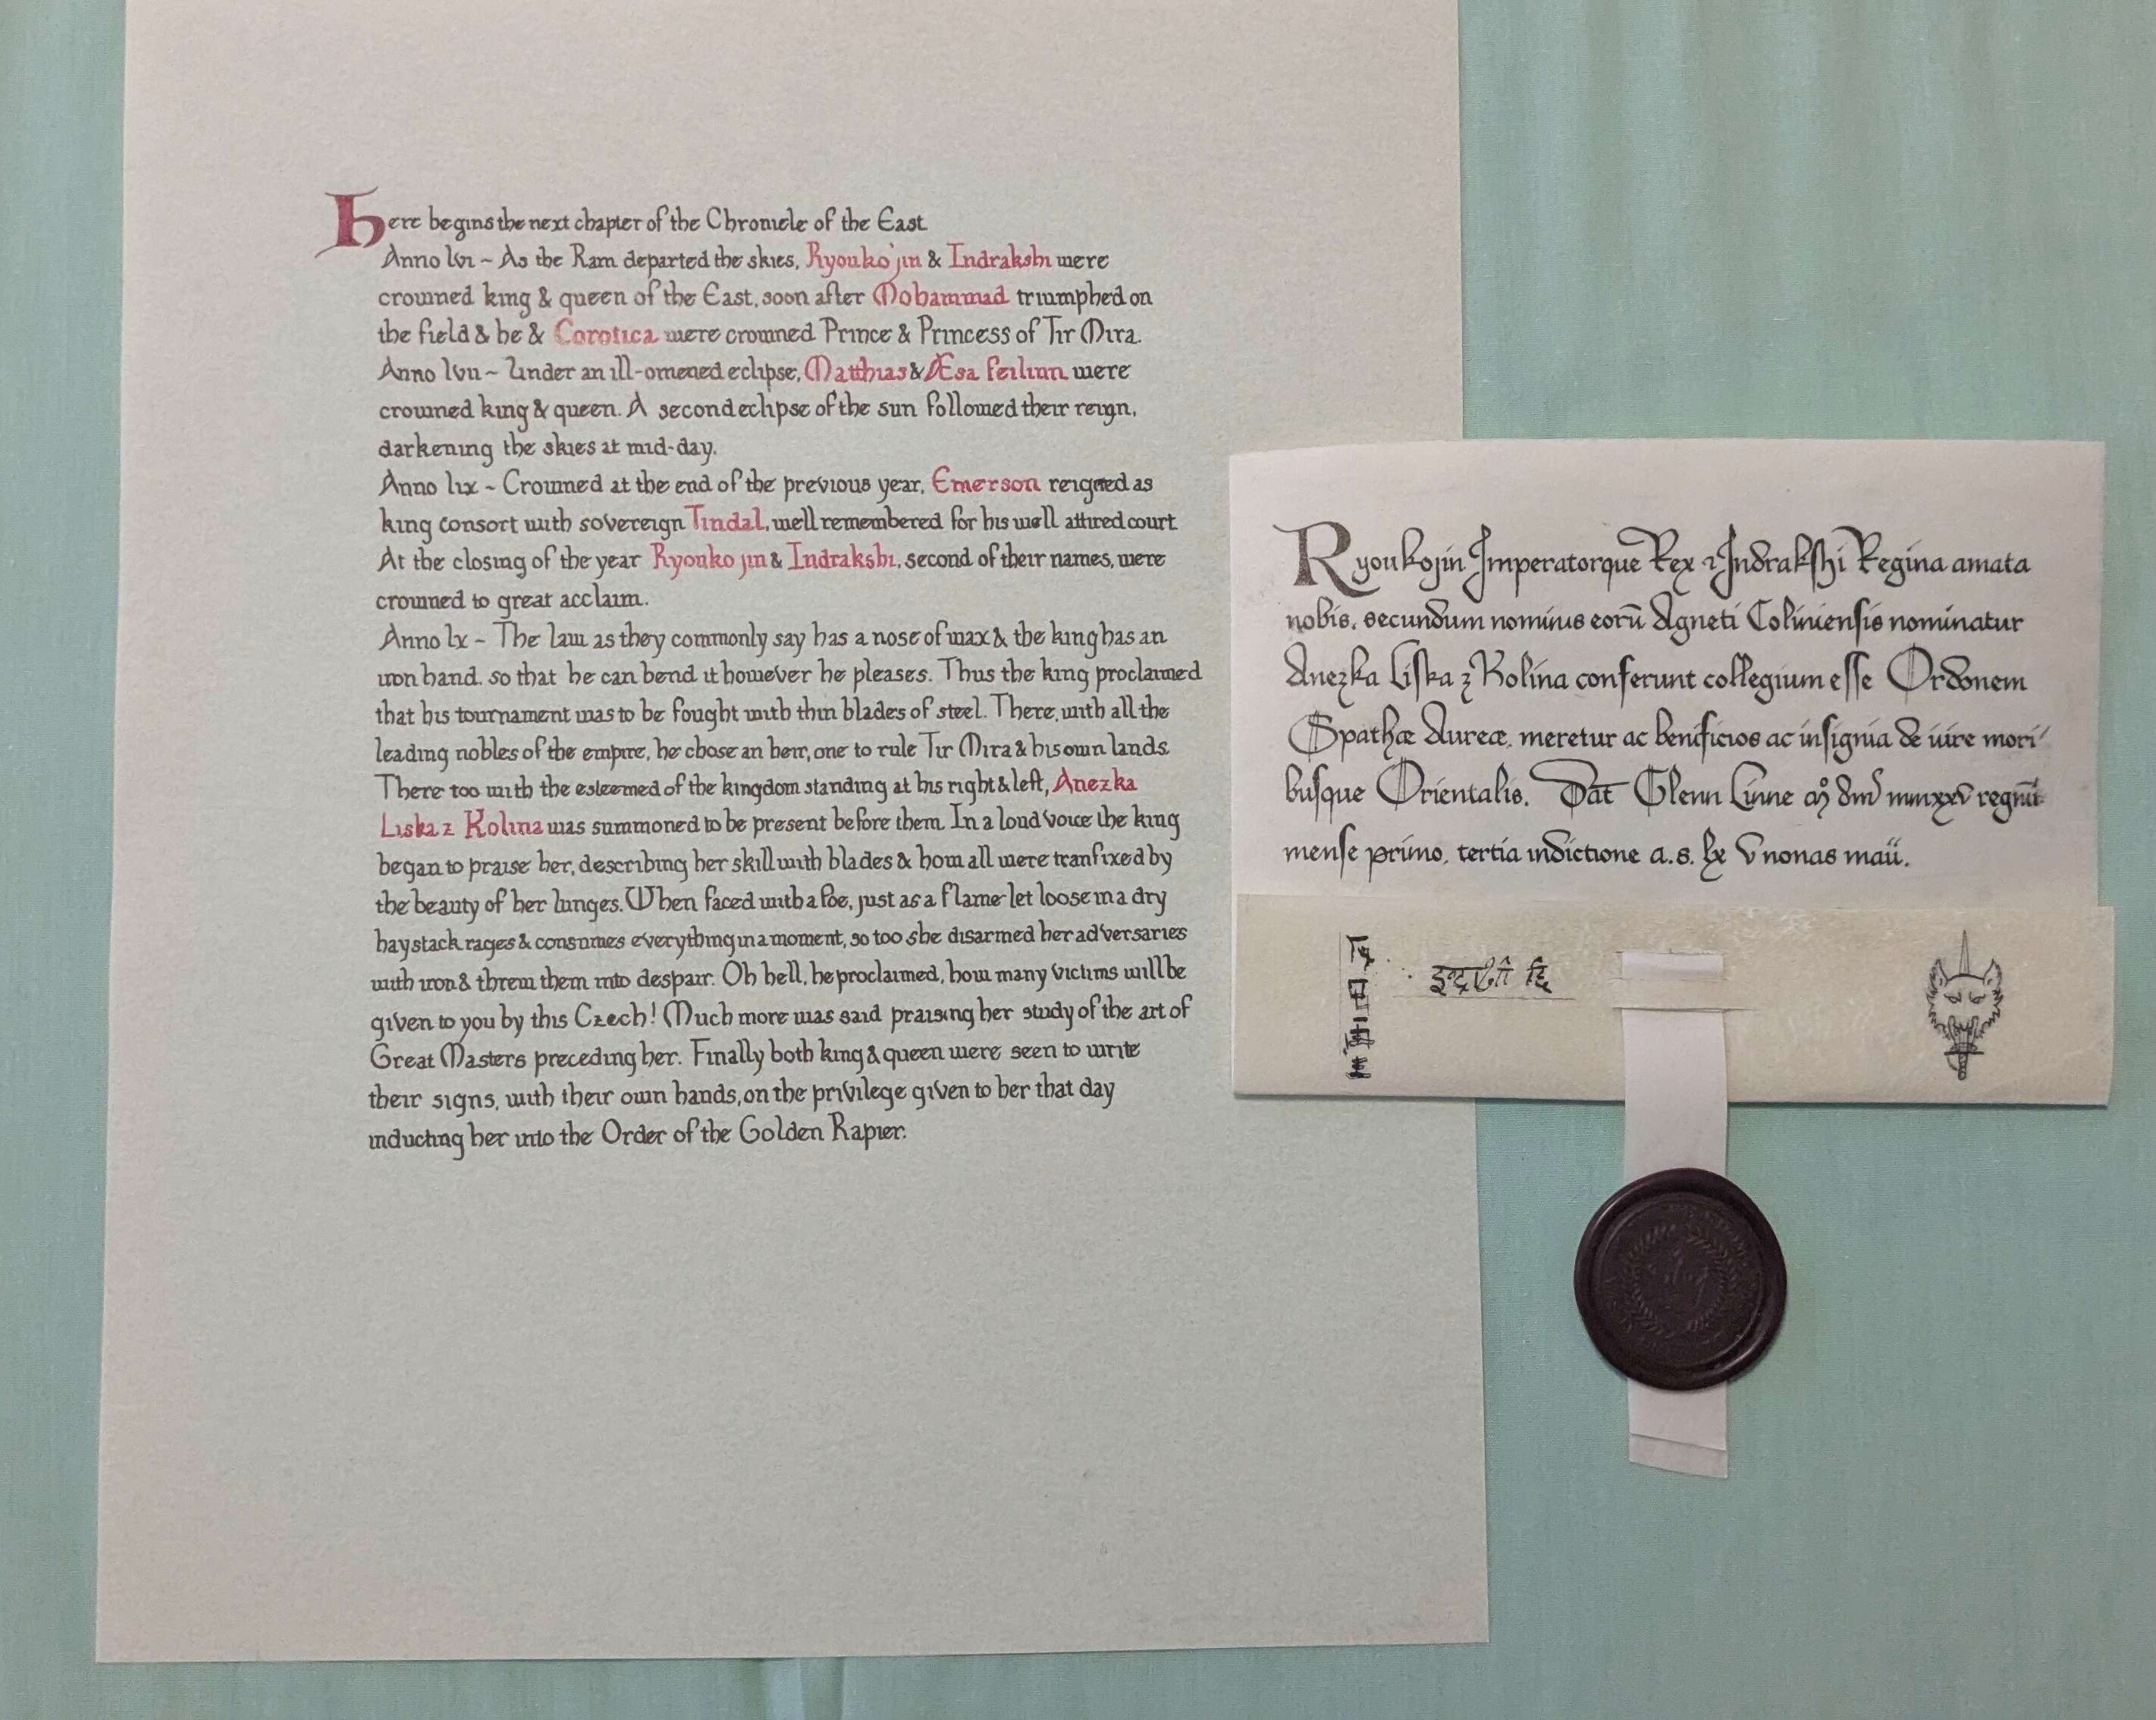 Here begins the next chapter of the Chronicle of the East.
Anno lvi ~ As the Ram departed the skies, Ryouko'jin & Indrakshi were
crowned king & queen of the East, soon after Mohammad triumphed on
the field & he & Corotica were crowned Prince & Princess of Tir Mara.
Anno lvii ~ Under an ill-omened eclipse, Matthias & Æsa feilinn were
crowned king & queen. A second eclipse of the sun followed their reign,
darkening the skies at mid-day.
Anno lix ~ Crowned at the end of the previous year, Emerson reigned as
king consort with sovereign Tindal, well remembered for his well attired court
At the closing of the year Ryouko jin & Indrakshi, second of their names, were
crowned to great acclaim.
Anno lx ~ The law as they commonly say has a nose of wax & the king has an
iron hand, so that he can bend it however he pleases. Thus the king proclaimed
that his tournament was to be fought with thin blades of steel. There, with all the
leading nobles of the empire, he chose an heir, one to rule Tir Mara & his own lands.
There too with the esteemed of the kingdom standing at his right & left, Anezka
Liska z Kolina was summoned to be present before them. In a loud voice the king
began to praise her, describing her skill with blades & how all were tranfixed by
the beauty of her lunges. When faced with a foe, just as a flame let loose in a dry
haystack rages & consumes everything in a moment, so too she disarmed her adversaries
with iron & threw them into despair. Oh hell, he proclaimed, how many victims will be
given to you by this Czech! Much more was said praising her study of the art of
Great Masters preceding her. Finally both king & queen were seen to write
their signs, with their own hands, on the privilege given to her that day
inducting her into the Order of the Golden Rapier.
Ryoukojin Imperatorque Rex & Indrakshi Regina amata
nobis, secundum nominis eorū Agneti Coliniensis nominatur
Anezka Liska z Kolina conferunt collegium esse Ordonem
Spathæ Aureæ, meretur ac benificios ac insignia de iure mori
busque Orientalis. Dat Glenn Linne mmxxv regni
mense primo, tertia indictione a.s. lx V nonas maii.